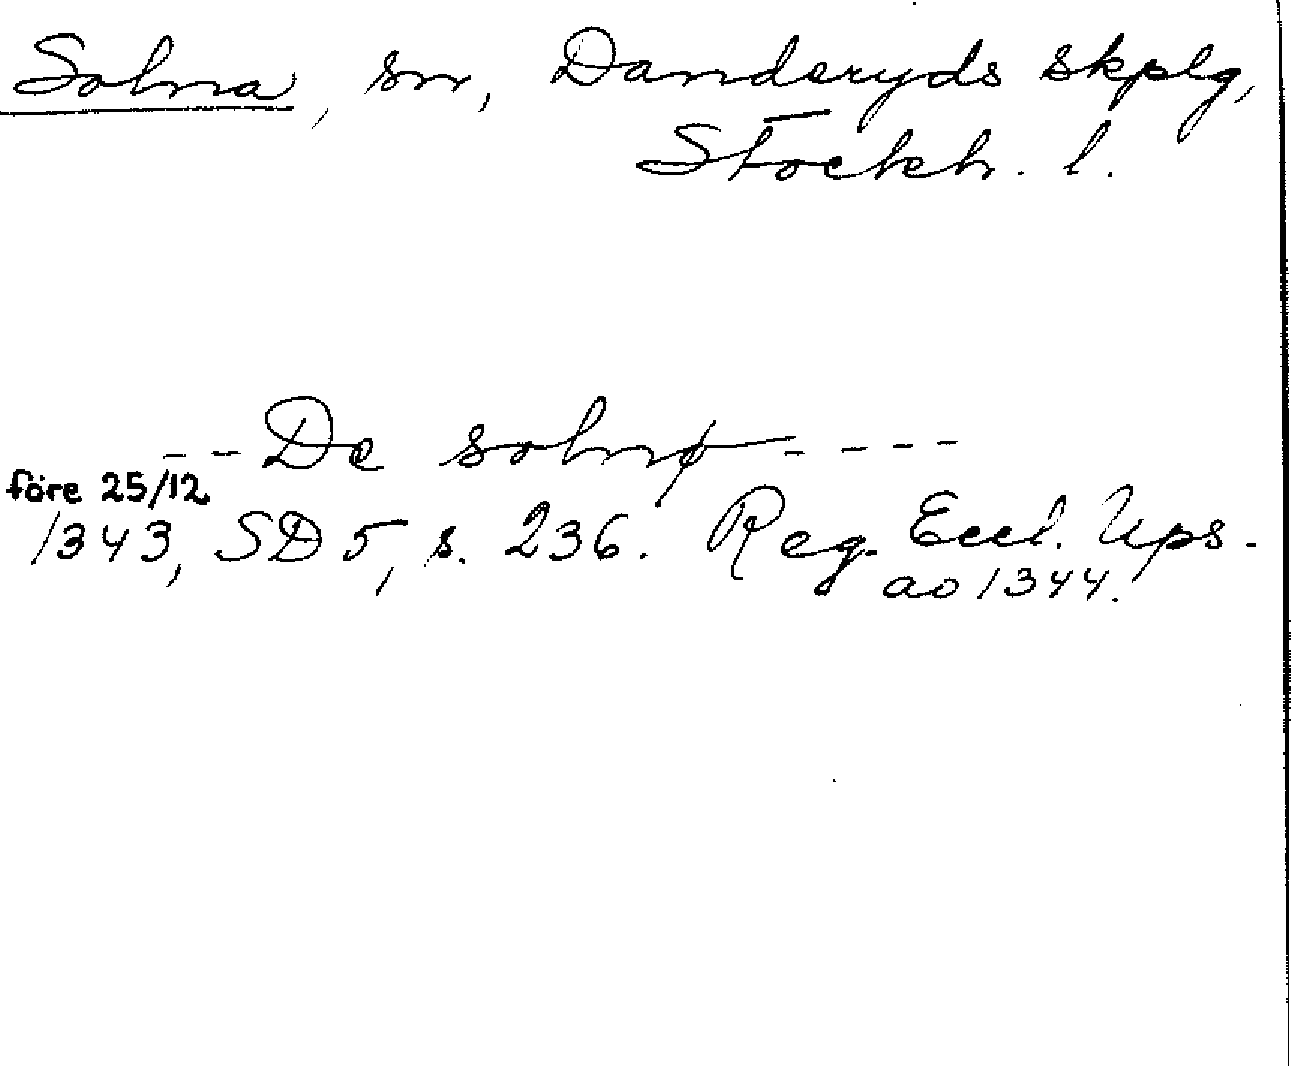 Solna, sn, Danderyds skplg,
Stockh. l.
- - De solnø - - - -
före 25/12
1343, SD 5, s. 236. Reg. Eccl. Ups.
ao 1344.